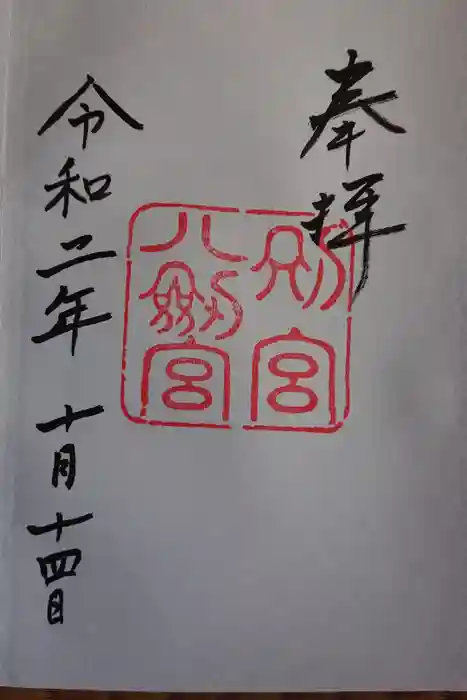 奉拝
別宮
八劔宮
令和二年 十月十四日